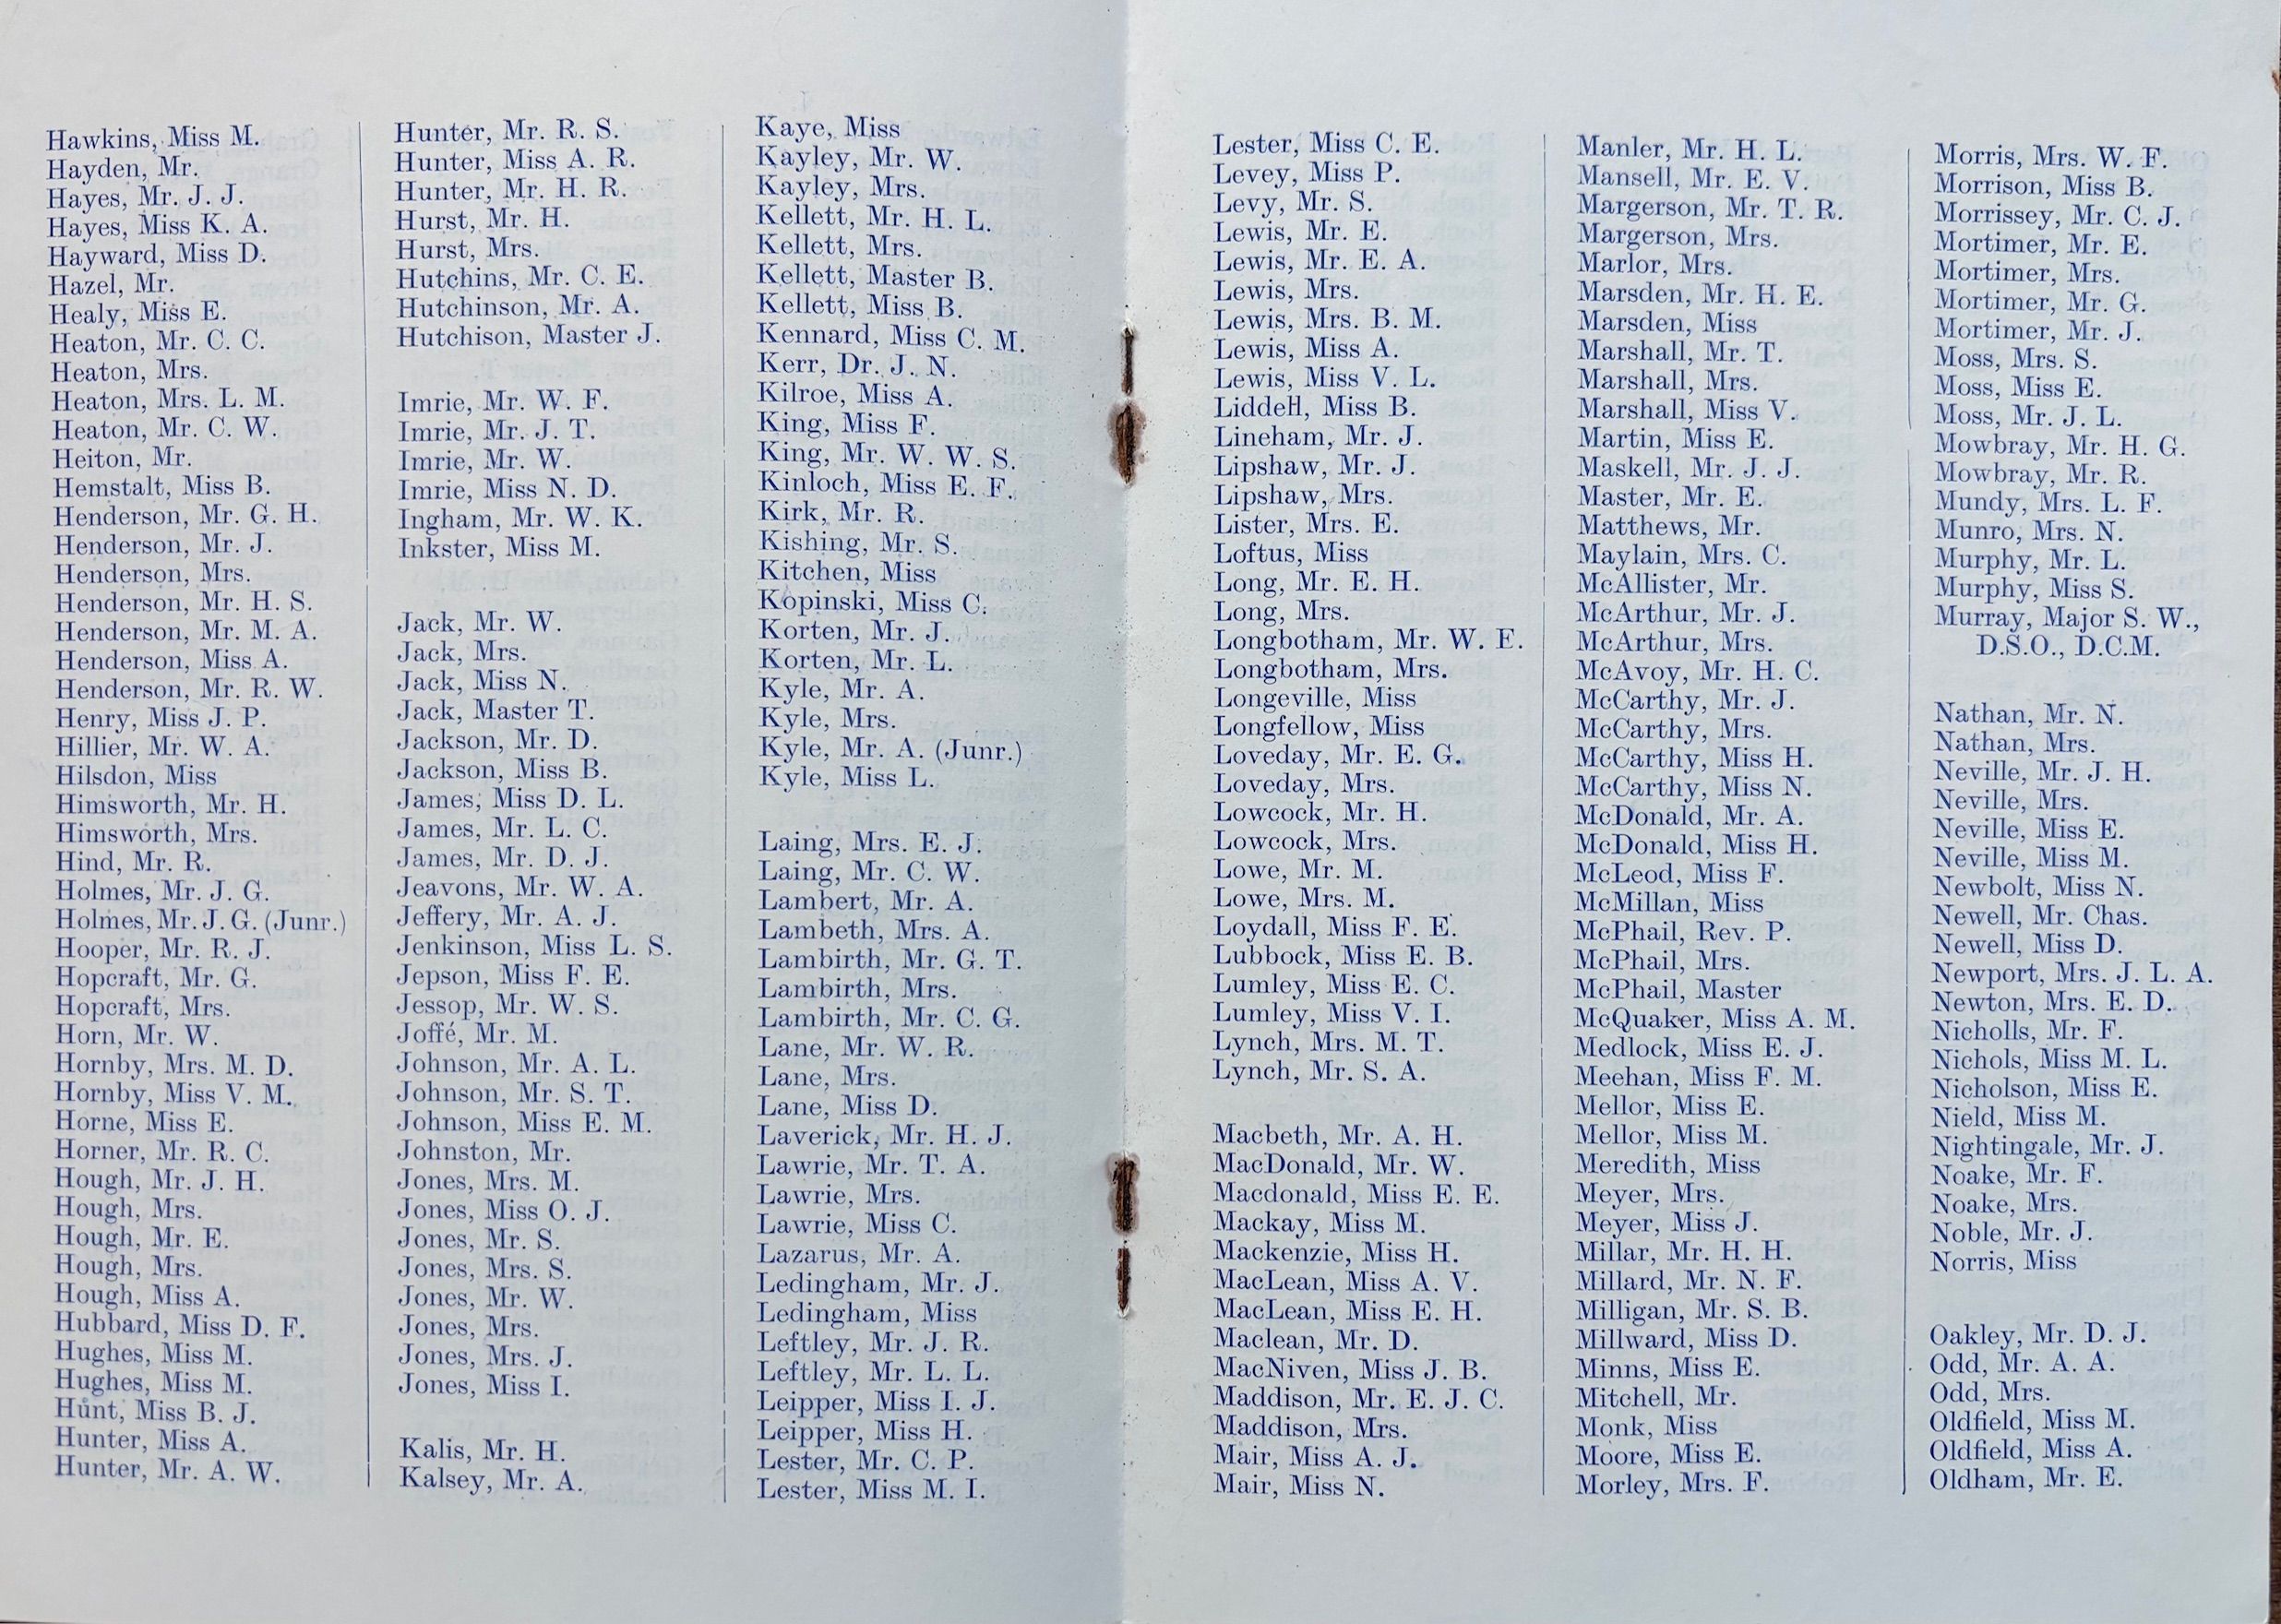 Hawkins, Miss M.
Hayden, Mr.
Hayes, Mr. J. J.
Hayes, Miss K. A.
Hayward, Miss D.
Hazel, Mr.
Healy, Miss E.
Heaton, Mr. C. C.
Heaton, Mrs.
Heaton, Mrs. L. M.
Heaton, Mr. C. W.
Heiton, Mr.
Hemstalt, Miss B.
Henderson, Mr. G. H.
Henderson, Mr. J.
Henderson, Mrs.
Henderson, Mr. H. S.
Henderson, Mr. M. A.
Henderson, Miss A.
Henderson, Mr. R. W.
Henry, Miss J. P.
Hillier, Mr. W. A.
Hilsdon, Miss
Himsworth, Mr. H.
Himsworth, Mrs.
Hind, Mr. R.
Holmes, Mr. J. G.
Holmes, Mr. J. G. (Junr.)
Hooper, Mr. R. J.
Hopcraft, Mr. G.
Hopcraft, Mrs.
Horn, Mr. W.
Hornby, Mrs. M. D.
Hornby, Miss V. M.
Horne, Miss E.
Horner, Mr. R. C.
Hough, Mr. J. H.
Hough, Mrs.
Hough, Mr. E.
Hough, Mrs.
Hough, Miss A.
Hubbard, Miss D. F.
Hughes, Miss M.
Hughes, Miss M.
Hunt, Miss B. J.
Hunter, Miss A.
Hunter, Mr. A. W.
Hunter, Mr. R. S.
Hunter, Miss A. R.
Hunter, Mr. H. R.
Hurst, Mr. H.
Hurst, Mrs.
Hutchins, Mr. C. E.
Hutchinson, Mr. A.
Hutchison, Master J.
Imrie, Mr. W. F.
Imrie, Mr. J. T.
Imrie, Mr. W.
Imrie, Miss N. D.
Ingham, Mr. W. K.
Inkster, Miss M.
Jack, Mr. W.
Jack, Mrs.
Jack, Miss N.
Jack, Master T.
Jackson, Mr. D.
Jackson, Miss B.
James, Miss D. L.
James, Mr. L. C.
James, Mr. D. J.
Jeavons, Mr. W. A.
Jeffery, Mr. A. J.
Jenkinson, Miss L. S.
Jepson, Miss F. E.
Jessop, Mr. W. S.
Joffé, Mr. M.
Johnson, Mr. A. L.
Johnson, Mr. S. T.
Johnson, Miss E. M.
Johnston, Mr.
Jones, Mrs. M.
Jones, Miss O. J.
Jones, Mr. S.
Jones, Mrs. S.
Jones, Mr. W.
Jones, Mrs.
Jones, Mrs. J.
Jones, Miss I.
Kalis, Mr. H.
Kalsey, Mr. A.
Kaye, Miss
Kayley, Mr. W.
Kayley, Mrs.
Kellett, Mr. H. L.
Kellett, Mrs.
Kellett, Master B.
Kellett, Miss B.
Kennard, Miss C. M.
Kerr, Dr. J. N.
Kilroe, Miss A.
King, Miss F.
King, Mr. W. W. S.
Kinloch, Miss E. F.
Kirk, Mr. R.
Kishing, Mr. S.
Kitchen, Miss
Kopinski, Miss C.
Korten, Mr. J.
Korten, Mr. L.
Kyle, Mr. A.
Kyle, Mrs.
Kyle, Mr. A. (Junr.)
Kyle, Miss L.
Laing, Mrs. E. J.
Laing, Mr. C. W.
Lambert, Mr. A.
Lambeth, Mrs. A.
Lambirth, Mr. G. T.
Lambirth, Mrs.
Lambirth, Mr. C. G.
Lane, Mr. W. R.
Lane, Mrs.
Lane, Miss D.
Laverick, Mr. H. J.
Lawrie, Mr. T. A.
Lawrie, Mrs.
Lawrie, Miss C.
Lazarus, Mr. A.
Ledingham, Mr. J.
Ledingham, Miss
Leftley, Mr. J. R.
Leftley, Mr. L. L.
Leipper, Miss I. J.
Leipper, Miss H.
Lester, Mr. C. P.
Lester, Miss M. I.
Lester, Miss C. E.
Levey, Miss P.
Levy, Mr. S.
Lewis, Mr. E.
Lewis, Mr. E. A.
Lewis, Mrs.
Lewis, Mrs. B. M.
Lewis, Miss A.
Lewis, Miss V. L.
Liddell, Miss B.
Lineham, Mr. J.
Lipshaw, Mr. J.
Lipshaw, Mrs.
Lister, Mrs. E.
Loftus, Miss
Long, Mr. E. H.
Long, Mrs.
Longbotham, Mr. W. E.
Longbotham, Mrs.
Longeville, Miss
Longfellow, Miss
Loveday, Mr. E. G.
Loveday, Mrs.
Lowcock, Mr. H.
Lowcock, Mrs.
Lowe, Mr. M.
Lowe, Mrs. M.
Loydall, Miss F. E.
Lubbock, Miss E. B.
Lumley, Miss E. C.
Lumley, Miss V. I.
Lynch, Mrs. M. T.
Lynch, Mr. S. A.
Macbeth, Mr. A. H.
MacDonald, Mr. W.
Macdonald, Miss E. E.
Mackay, Miss M.
Mackenzie, Miss H.
MacLean, Miss A. V.
MacLean, Miss E. H.
Maclean, Mr. D.
MacNiven, Miss J. B.
Maddison, Mr. E. J. C.
Maddison, Mrs.
Mair, Miss A. J.
Mair, Miss N.
Manler, Mr. H. L.
Mansell, Mr. E. V.
Margerson, Mr. T. R.
Margerson, Mrs.
Marlor, Mrs.
Marsden, Mr. H. E.
Marsden, Miss
Marshall, Mr. T.
Marshall, Mrs.
Marshall, Miss V.
Martin, Miss E.
Maskell, Mr. J. J.
Master, Mr. E.
Matthews, Mr.
Maylain, Mrs. C.
McAllister, Mr.
McArthur, Mr. J.
McArthur, Mrs.
McAvoy, Mr. H. C.
McCarthy, Mr. J.
McCarthy, Mrs.
McCarthy, Miss H.
McCarthy, Miss N.
McDonald, Mr. A.
McDonald, Miss H.
McLeod, Miss F.
McMillan, Miss
McPhail, Rev. P.
McPhail, Mrs.
McPhail, Master
McQuaker, Miss A. M.
Medlock, Miss E. J.
Meehan, Miss F. M.
Mellor, Miss E.
Mellor, Miss M.
Meredith, Miss
Meyer, Mrs.
Meyer, Miss J.
Millar, Mr. H. H.
Millard, Mr. N. F.
Milligan, Mr. S. B.
Millward, Miss D.
Minns, Miss E.
Mitchell, Mr.
Monk, Miss
Moore, Miss E.
Morley, Mrs. F.
Morris, Mrs. W. F.
Morrison, Miss B.
Morrissey, Mr. C. J.
Mortimer, Mr. E.
Mortimer, Mrs.
Mortimer, Mr. G.
Mortimer, Mr. J.
Moss, Mrs. S.
Moss, Miss E.
Moss, Mr. J. L.
Mowbray, Mr. H. G.
Mowbray, Mr. R.
Mundy, Mrs. L. F.
Munro, Mrs. N.
Murphy, Mr. L.
Murphy, Miss S.
Murray, Major S. W.,
D.S.O., D.C.M.
Nathan, Mr. N.
Nathan, Mrs.
Neville, Mr. J. H.
Neville, Mrs.
Neville, Miss E.
Neville, Miss M.
Newbolt, Miss N.
Newell, Mr. Chas.
Newell, Miss D.
Newport, Mrs. J. L. A.
Newton, Mrs. E. D.
Nicholls, Mr. F.
Nichols, Miss M. L.
Nicholson, Miss E.
Nield, Miss M.
Nightingale, Mr. J.
Noake, Mr. F.
Noake, Mrs.
Noble, Mr. J.
Norris, Miss
Oakley, Mr. D. J.
Odd, Mr. A. A.
Odd, Mrs.
Oldfield, Miss M.
Oldfield, Miss A.
Oldham, Mr. E.